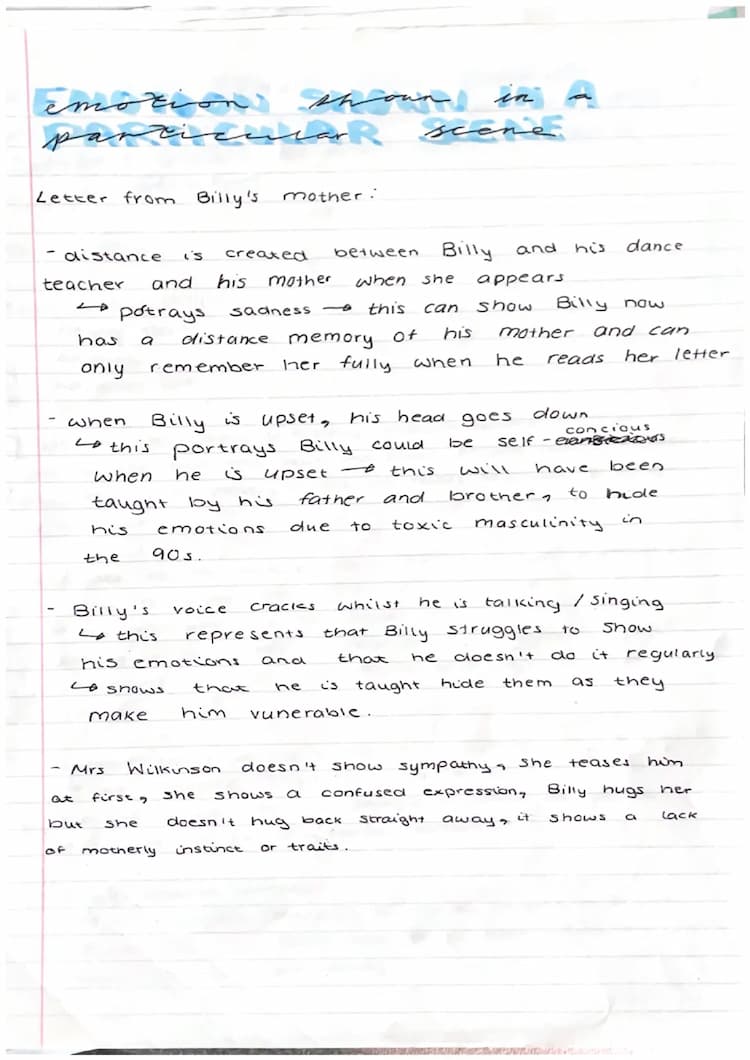 emotion shown in a
particular scene
Letter from Billy's mother:
- distance is created between Billy and his dance
teacher and his mother when she appears
↳ potrays sadness → this can show Billy now
has a distance memory of his mother and can
only remember her fully when he reads her letter
- when Billy is upset, his head goes down
concious
↳ this portrays Billy could be self-
when he is upset → this will have been
taught by his father and brother, to hide
his emotions due to toxic masculinity in
the 90s.
- Billy's voice cracks whilst he is talking / singing
↳ this represents that Billy struggles to show
his emotions and that he doesn't do it regularly
↳ shows that he is taught hide them as they
make him vunerable.
- Mrs Wilkinson doesn't show sympathy, she teases him
at first, she shows a confused expression, Billy hugs her
but she doesn't hug back straight away, it shows a lack
of motherly instinct or traits.